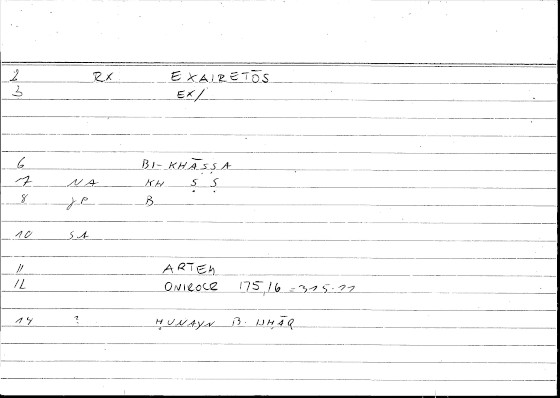 2 RX EXAIRETŌS
3 EX/
6 BI-KHĀṢṢA
7 NA KH Ṣ Ṣ
8 JP B
10 SA
11 ARTEM
12 ONIROCR 175,16 = 315.11
14 ? ḤUNAYN B. ISḤĀQ